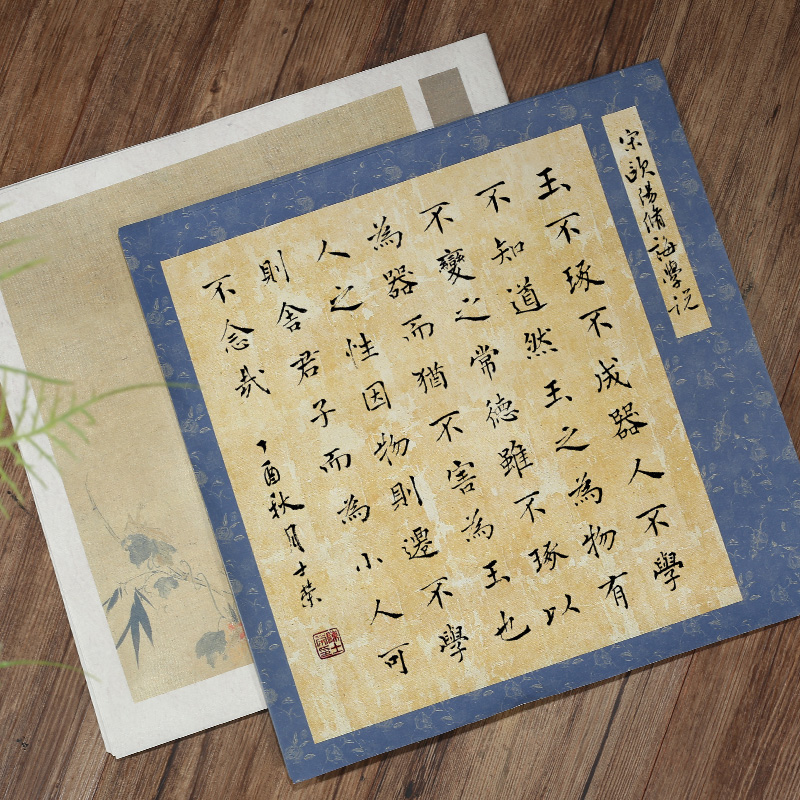 宋歐陽脩誨學説
玉不琢不成器人不學
不知道然玉之為物有
不變之常德雖不琢以
為器而猶不害為玉也
人之性因物則遷不學
則舍君子而為小人可
不念哉 丁酉秋月士榮